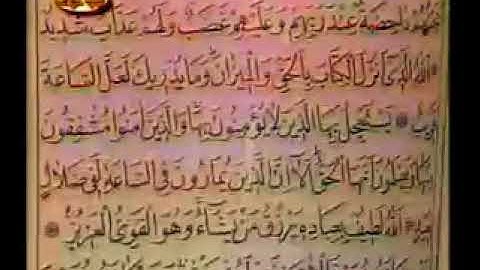 حجتهم داحضة عند ربهم وعليهم غضب ولهم عذاب شديد
الله الذي أنزل الكتاب بالحق والميزان وما يدريك لعل الساعة
قريب يستعجل بها الذين لا يؤمنون بها والذين آمنوا مشفقون
منها ويعلمون أنها الحق ألا إن الذين يمارون في الساعة لفي ضلال
بعيد الله لطيف بعباده يرزق من يشاء وهو القوي العزيز